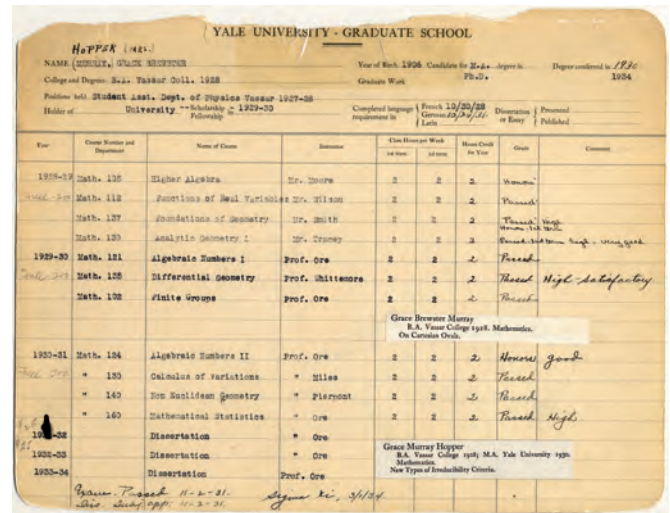 YALE UNIVERSITY · GRADUATE SCHOOL
HOPPER (MRS.)
NAME (MURRAY, GRACE BREWSTER Year of Birth 1906 Candidate for M.A. degree in Degree conferred in 1930
College and Degrees B.A. Vassar Coll. 1928 Graduate Work Ph.D. 1934
Positions held Student Asst. Dept. of Physics Vassar 1927-28
Holder of University Scholarship Fellowship 1929-30 Completed language requirement in French 10/30/28 German Latin Dissertation or Essay Presented Published
Year Course Number and Department Name of Course Instructor Class Hours per Week 1st term 2d term Hours Credit for Year Grade Comment
1928-29 Math. Higher Algebra Mr. Moore 2 2 2 Honors
Math. 112 Functions of Real Variables Mr. Wilson 2 2 2 Passed
Math. 137 Foundations of Geometry Mr. Smith 2 2 2 Passed High
Honors
Math. 130 Analytic Geometry I Mr. Tracey 2 2 2 Passed High - very good
1929-30 Math. 121 Algebraic Numbers I Prof. Ore 2 2 2 Passed
Math. Differential Geometry Prof. Whittemore 2 2 2 Passed High - Satisfactory
Math. 102 Finite Groups Prof. Ore 2 2 2 Passed
Grace Brewster Murray
B.A. Vassar College 1928. Mathematics.
On Cartesian Ovals.
1930-31 Math. 124 Algebraic Numbers II Prof. Ore 2 2 2 Honors good
" 130 Calculus of Variations " Miles 2 2 2 Passed
" 140 Non Euclidean Geometry " Pierpont 2 2 2 Passed
" 160 Mathematical Statistics " Ore 2 2 2 Passed High
Dissertation " Ore
1932-33 Dissertation " Ore
Grace Murray Hopper
B.A. Vassar College 1928; M.A. Yale University 1930.
Mathematics.
New Types of Irreducibility Criteria.
1933-34 Dissertation Prof. Ore
Exams. Passed 11-2-31. Sigma Xi,
Diss. Subj. app. 11-2-31.